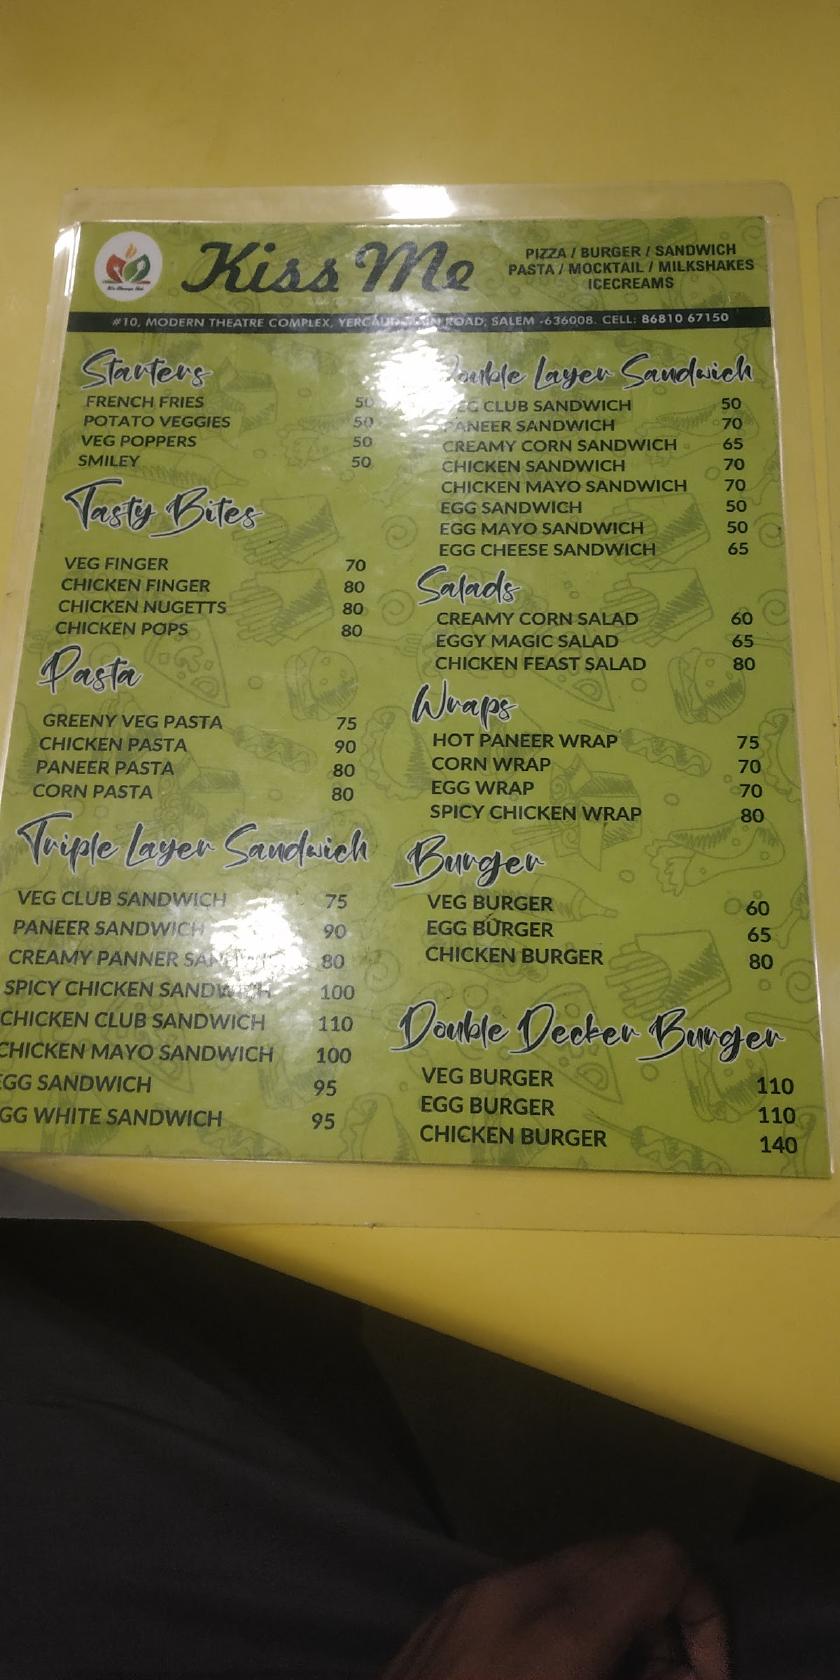 Kiss Me
PIZZA / BURGER / SANDWICH
PASTA / MOCKTAIL / MILKSHAKES
ICECREAMS
#10, MODERN THEATRE COMPLEX, YERCAUD MAIN ROAD, SALEM -636008. CELL: 86810 67150
Starters
FRENCH FRIES 50
POTATO VEGGIES 50
VEG POPPERS 50
SMILEY 50
Tasty Bites
VEG FINGER 70
CHICKEN FINGER 80
CHICKEN NUGETTS 80
CHICKEN POPS 80
Pasta
GREENY VEG PASTA 75
CHICKEN PASTA 90
PANEER PASTA 80
CORN PASTA 80
Triple Layer Sandwich
VEG CLUB SANDWICH 75
PANEER SANDWICH 90
CREAMY PANNER SANDWICH 80
SPICY CHICKEN SANDWICH 100
CHICKEN CLUB SANDWICH 110
CHICKEN MAYO SANDWICH 100
EGG SANDWICH 95
EGG WHITE SANDWICH 95
Double Layer Sandwich
VEG CLUB SANDWICH 50
PANEER SANDWICH 70
CREAMY CORN SANDWICH 65
CHICKEN SANDWICH 70
CHICKEN MAYO SANDWICH 70
EGG SANDWICH 50
EGG MAYO SANDWICH 50
EGG CHEESE SANDWICH 65
Salads
CREAMY CORN SALAD 60
EGGY MAGIC SALAD 65
CHICKEN FEAST SALAD 80
Wraps
HOT PANEER WRAP 75
CORN WRAP 70
EGG WRAP 70
SPICY CHICKEN WRAP 80
Burger
VEG BURGER 60
EGG BURGER 65
CHICKEN BURGER 80
Double Decker Burger
VEG BURGER 110
EGG BURGER 110
CHICKEN BURGER 140